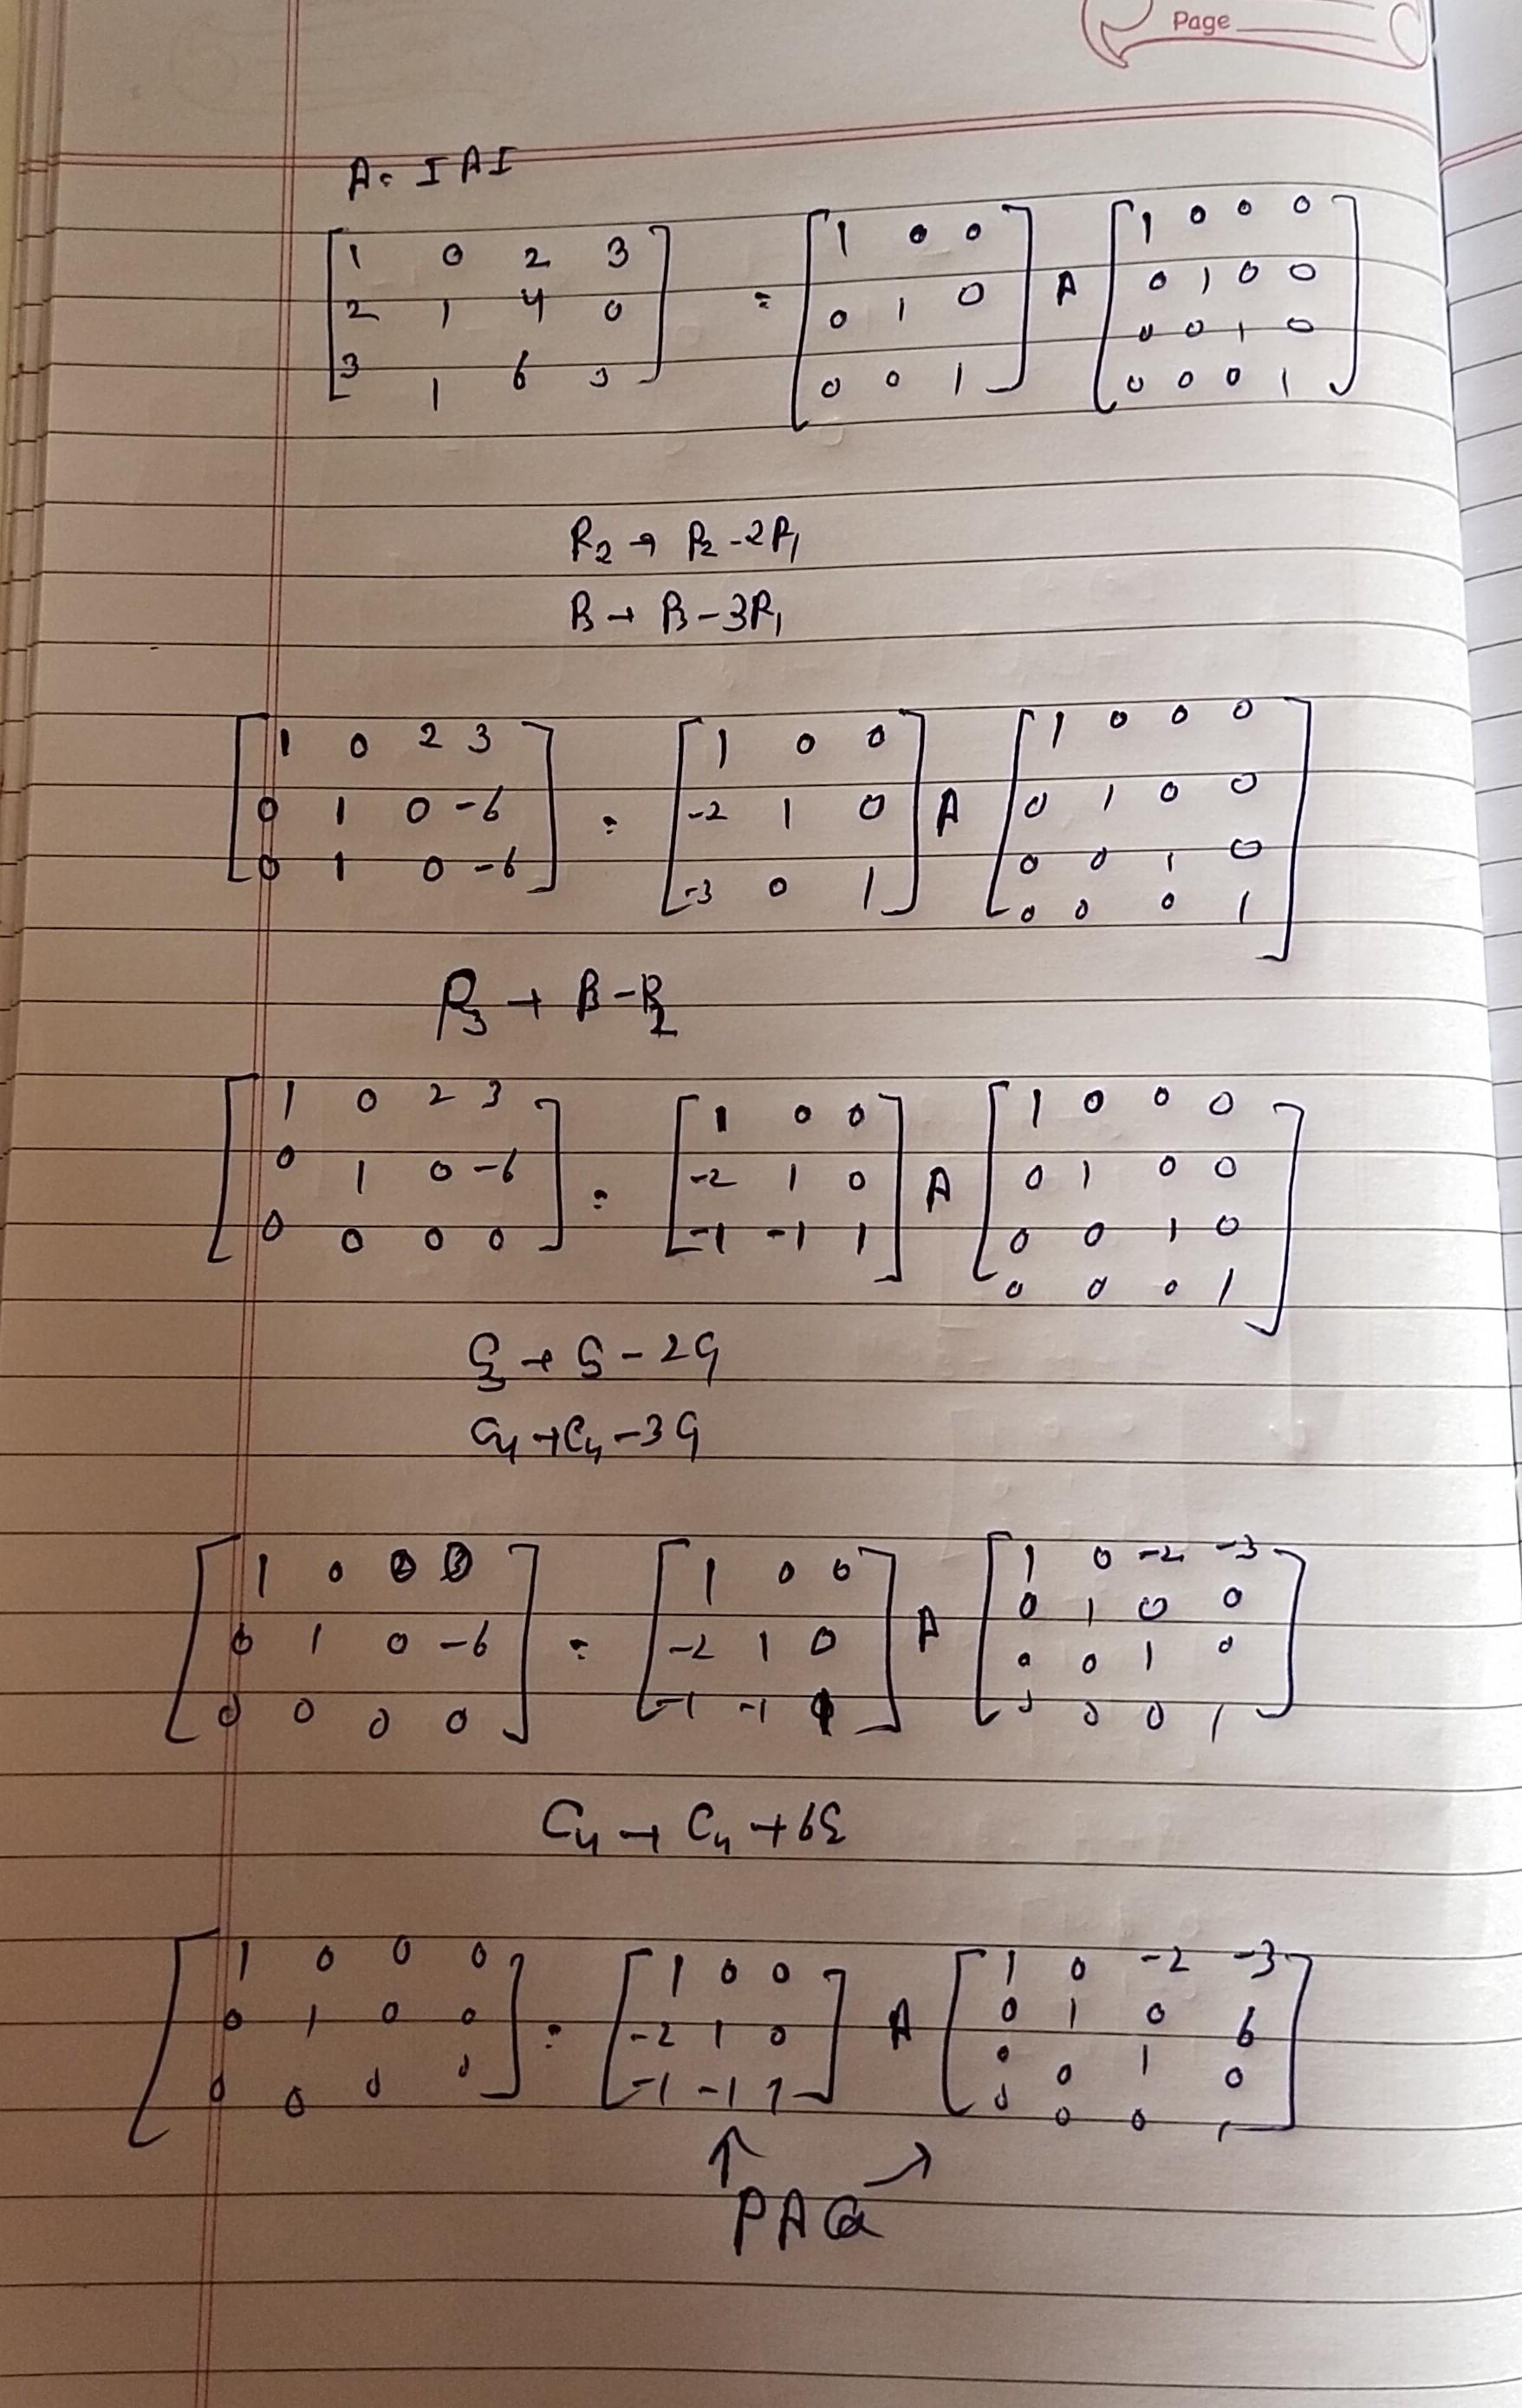 Page
A = I A I
[1 0 2 3; 2 1 4 0; 3 1 6 3] = [1 0 0; 0 1 0; 0 0 1] A [1 0 0 0; 0 1 0 0; 0 0 1 0; 0 0 0 1]
R2 → R2 - 2R1
R3 → R3 - 3R1
[1 0 2 3; 0 1 0 -6; 0 1 0 -6] = [1 0 0; -2 1 0; -3 0 1] A [1 0 0 0; 0 1 0 0; 0 0 1 0; 0 0 0 1]
R3 → R3 - R2
[1 0 2 3; 0 1 0 -6; 0 0 0 0] = [1 0 0; -2 1 0; -1 -1 1] A [1 0 0 0; 0 1 0 0; 0 0 1 0; 0 0 0 1]
C3 → C3 - 2C1
C4 → C4 - 3C1
[1 0 0 0; 0 1 0 -6; 0 0 0 0] = [1 0 0; -2 1 0; -1 -1 1] A [1 0 -2 -3; 0 1 0 0; 0 0 1 0; 0 0 0 1]
C4 → C4 + 6C2
[1 0 0 0; 0 1 0 0; 0 0 0 0] = [1 0 0; -2 1 0; -1 -1 1] A [1 0 -2 -3; 0 1 0 6; 0 0 1 0; 0 0 0 1]
↑ →
PAQ